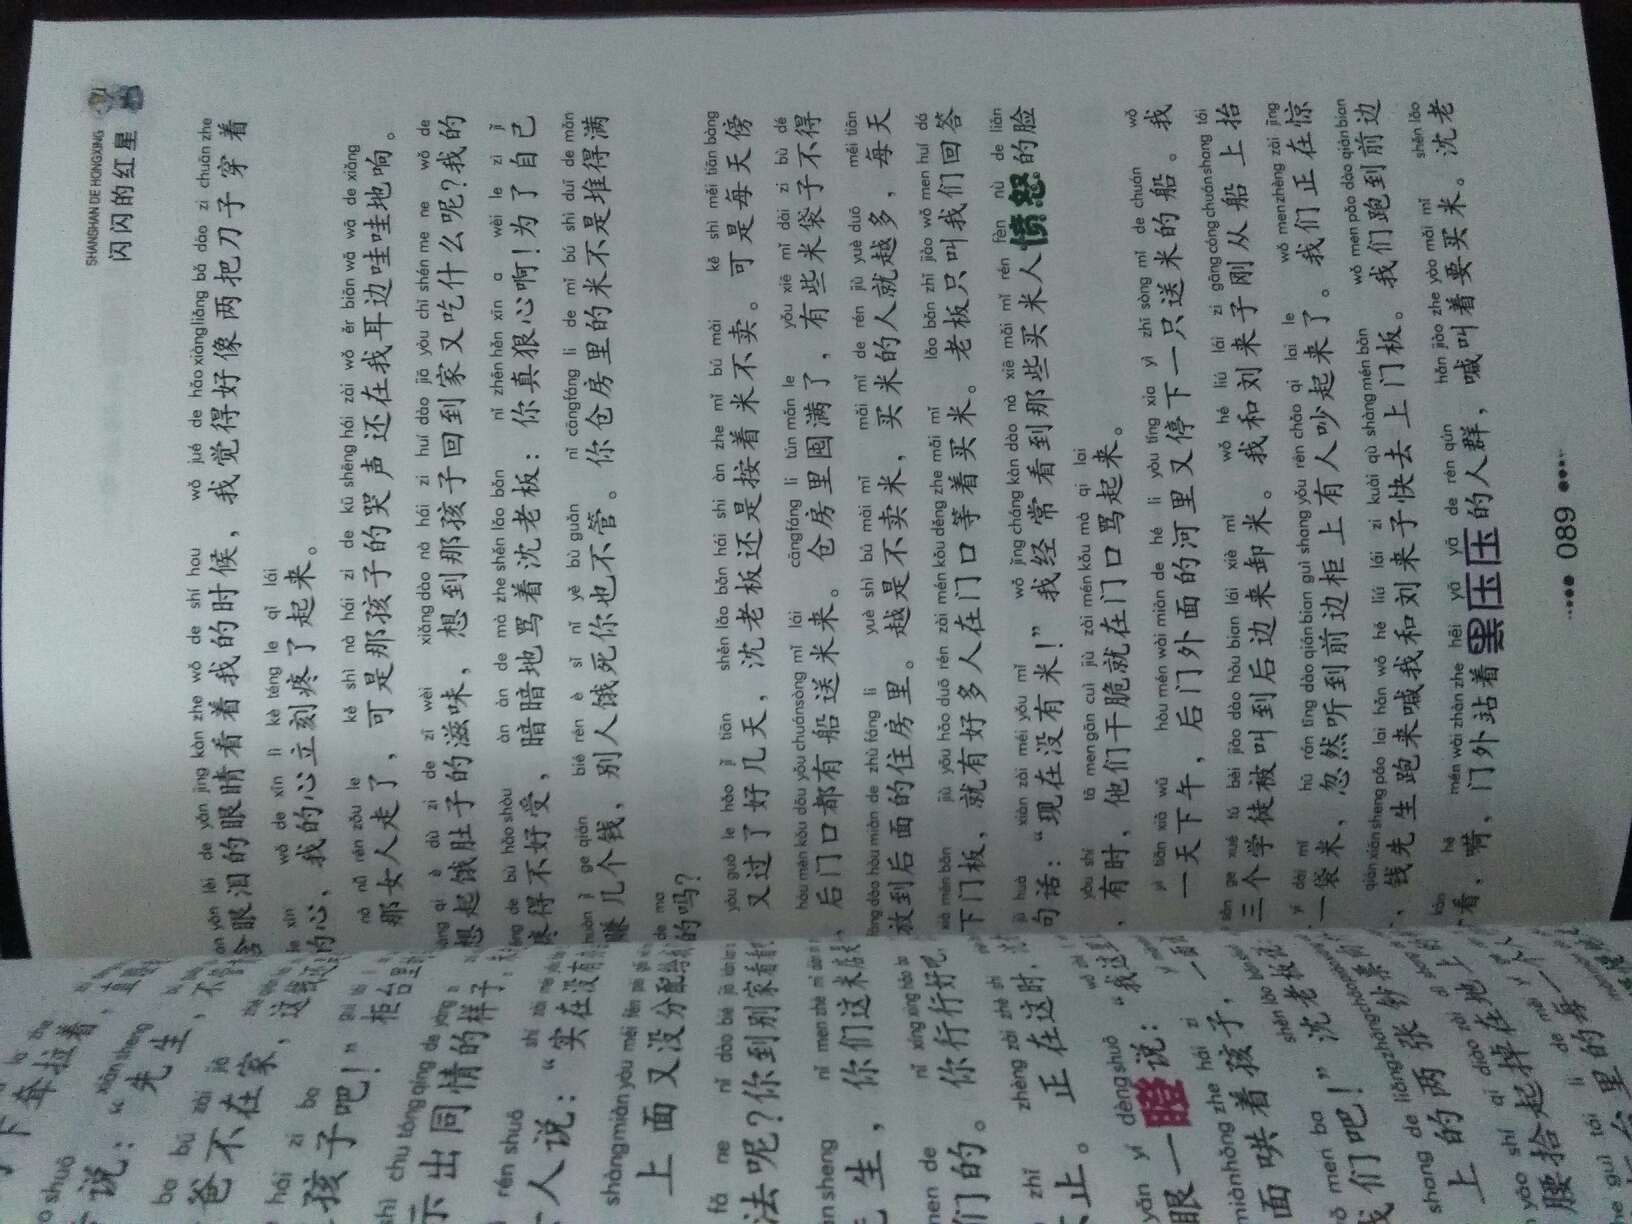 SHANSHAN DE HONGXING
闪闪的红星
含眼泪的眼睛看着我的时候，我觉得好像两把刀子穿着
的心，我的心立刻疼了起来。
那女人走了，可是那孩子的哭声还在我耳边哇哇地响。
想起饿肚子的滋味，想到那孩子回到家又吃什么呢？我的
疼得不好受，暗暗地骂着沈老板：你真狠心啊！为了自己
赚几个钱，别人饿死你也不管。你仓房里的米不是堆得满
的吗？
又过了好几天，沈老板还是按着米不卖。可是每天傍
后门口都有船送米来。仓房里囤满了，有些米袋子不得
放到后面的住房里。越是不卖米，买米的人就越多，每天
下门板，就有好多人在门口等着买米。老板只叫我们回答
句话：“现在没有米！”我经常看到那些买米人愤怒的脸
，有时，他们干脆就在门口骂起来。
一天下午，后门外面的河里又停下一只送米的船。我
三个学徒被叫到后边来卸米。我和刘来子刚从船上抬
一袋米，忽然听到前边柜上有人吵起来了。我们正在惊
、钱先生跑来喊我和刘来子快去上门板。我们跑到前边
看，嗬，门外站着黑压压的人群，喊叫着要买米。沈老
089
下奔拉着，
说：“先生，
爸不在家，这
孩子吧！”柜台里
示出同情的样子：
人说：“实在没有
上面又没分配
法呢？你到别家看
生，你们这米
们的。你行行好吧
止。正在这时，
眼一瞪说：“我
面哄着孩子，
我们吧！”沈老板
上的两张钞票
腰拾起掉在地上
台里的每一个人